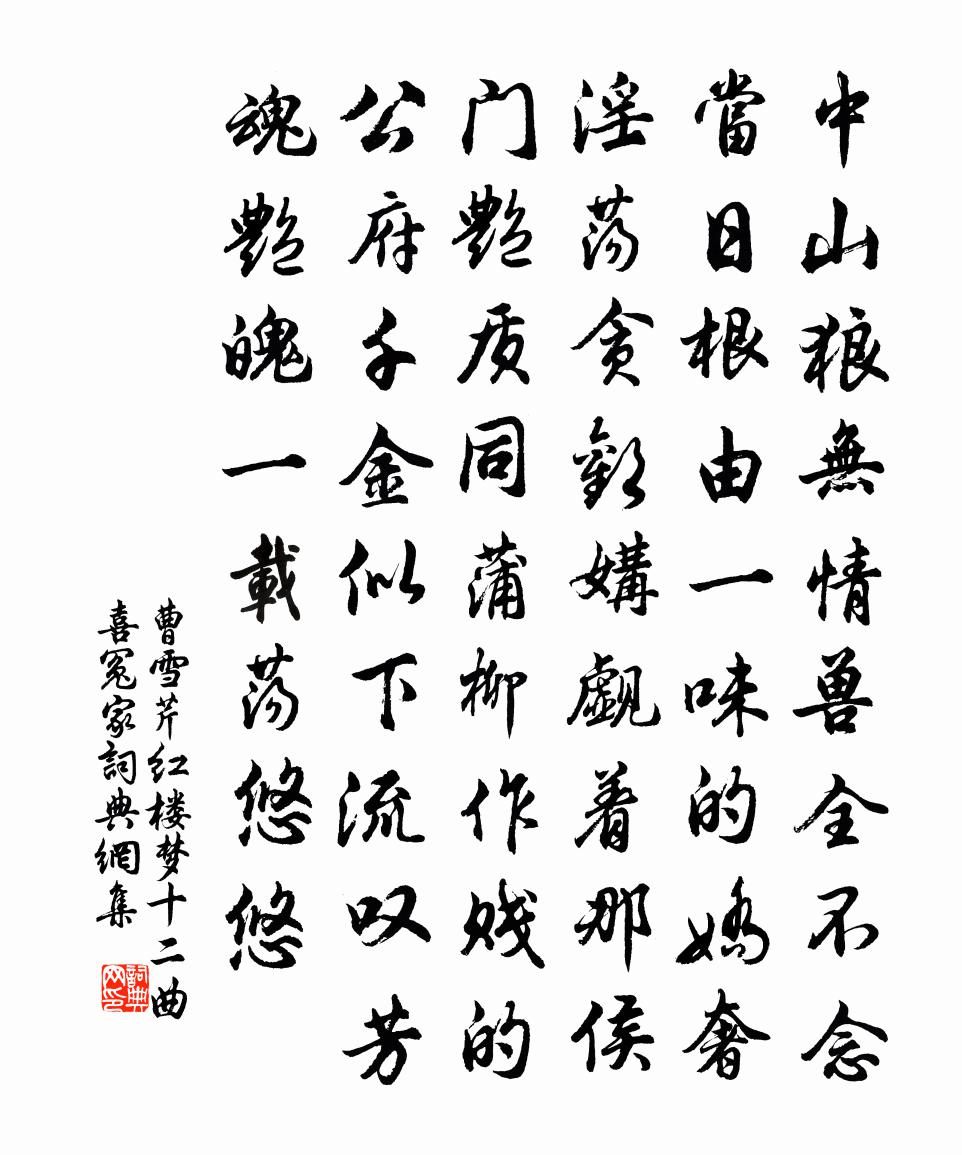 中山狼無情兽全不念
當日根由一味的嬌奢
淫荡贪歡媾觑着那侯
门艶质同蒲柳作贱的
公府千金似下流叹芳
魂艶魄一載荡悠悠
曹雪芹红楼梦十二曲
喜冤家詞典網集
詞典网印